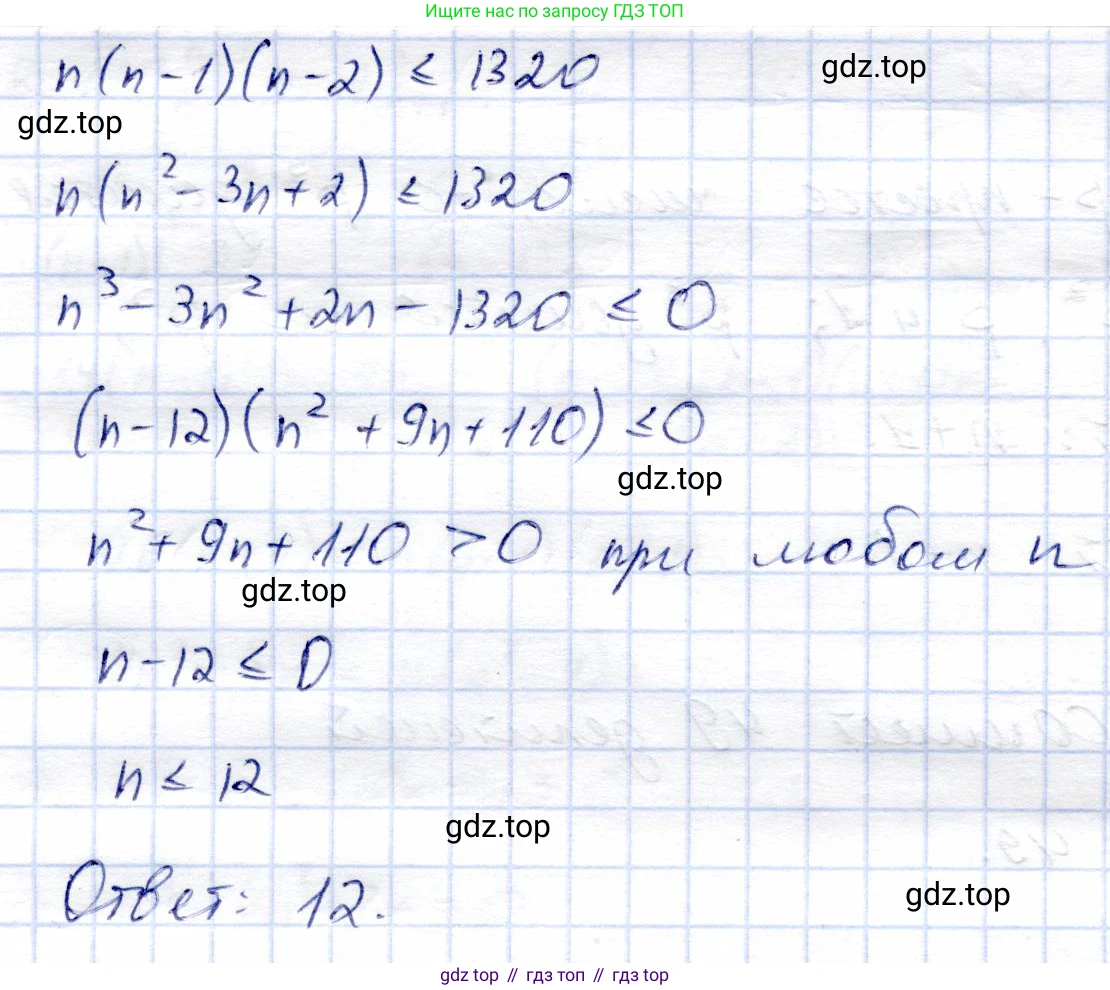 Ищите нас по запросу ГДЗ ТОП
n(n-1)(n-2) ≤ 1320
gdz.top
gdz.top
n(n²-3n+2) ≤ 1320
n³-3n²+2n-1320 ≤ 0
(n-12)(n²+9n+110) ≤ 0
gdz.top
n²+9n+110 > 0 при любом n
gdz.top
n-12 ≤ 0
n ≤ 12
gdz.top
Ответ: 12.
gdz.top
gdz top // гдз топ // гдз top